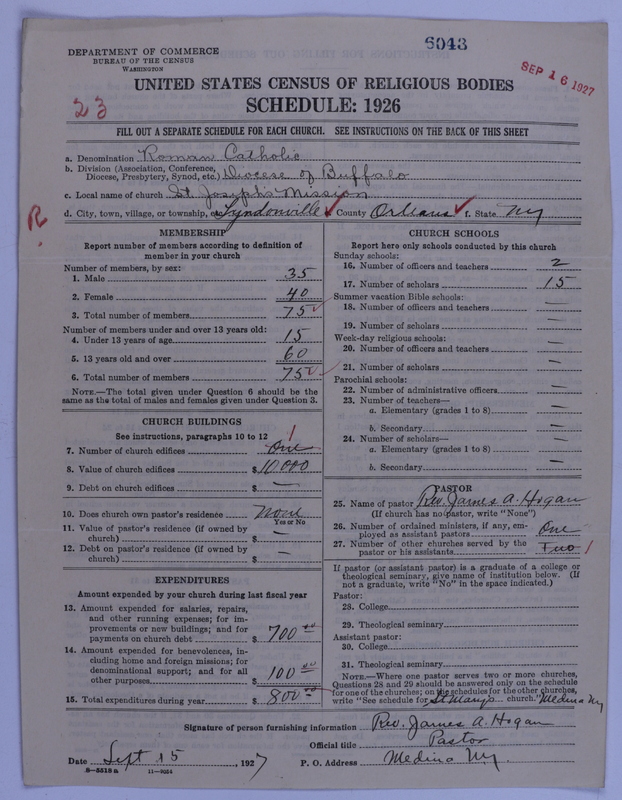 6043
DEPARTMENT OF COMMERCE
BUREAU OF THE CENSUS
WASHINGTON
SEP 16 1927
UNITED STATES CENSUS OF RELIGIOUS BODIES
SCHEDULE: 1926
23
FILL OUT A SEPARATE SCHEDULE FOR EACH CHURCH. SEE INSTRUCTIONS ON THE BACK OF THIS SHEET
a. Denomination Roman Catholic
b. Division (Association, Conference, Diocese of Buffalo
Diocese, Presbytery, Synod, etc.)
c. Local name of church St. Joseph's Mission
d. City, town, village, or township, Lyndonville County Orleans f. State NY
R.
MEMBERSHIP
Report number of members according to definition of
member in your church
Number of members, by sex:
1. Male 35
2. Female 40
3. Total number of members 75
Number of members under and over 13 years old:
4. Under 13 years of age 15
5. 13 years old and over 60
6. Total number of members 75
NOTE.—The total given under Question 6 should be the
same as the total of males and females given under Question 3.
CHURCH BUILDINGS
See instructions, paragraphs 10 to 12
1
7. Number of church edifices One
8. Value of church edifices $10000
9. Debt on church edifices $ —
10. Does church own pastor's residence None
Yes or No
11. Value of pastor's residence (if owned by
church) $ —
12. Debt on pastor's residence (if owned by
church) $ —
EXPENDITURES
Amount expended by your church during last fiscal year
13. Amount expended for salaries, repairs,
and other running expenses; for im-
provements or new buildings; and for
payments on church debt $ 700 00
14. Amount expended for benevolences, in-
cluding home and foreign missions; for
denominational support; and for all
other purposes $ 100 00
15. Total expenditures during year $ 800 00
CHURCH SCHOOLS
Report here only schools conducted by this church
Sunday schools:
16. Number of officers and teachers 2
17. Number of scholars 15
Summer vacation Bible schools:
18. Number of officers and teachers —
19. Number of scholars —
Week-day religious schools:
20. Number of officers and teachers —
21. Number of scholars —
Parochial schools:
22. Number of administrative officers —
23. Number of teachers—
a. Elementary (grades 1 to 8) —
b. Secondary —
24. Number of scholars—
a. Elementary (grades 1 to 8) —
b. Secondary —
PASTOR
25. Name of pastor Rev. James A. Hogan
(If church has no pastor, write "None")
26. Number of ordained ministers, if any, em-
ployed as assistant pastors One
27. Number of other churches served by the
pastor or his assistants Two 1
If pastor (or assistant pastor) is a graduate of a college or
theological seminary, give name of institution below. (If
not a graduate, write "No" in the space indicated.)
Pastor:
28. College
29. Theological seminary
Assistant pastor:
30. College
31. Theological seminary
NOTE.—Where one pastor serves two or more churches,
Questions 28 and 29 should be answered only on the schedule
for one of the churches; on the schedules for the other churches,
write "See schedule for St Marys church." Medina NY
Signature of person furnishing information Rev. James A. Hogan
Official title Pastor
Date Sept 15, 1927 P. O. Address Medina NY.
8—5518a 11—9054